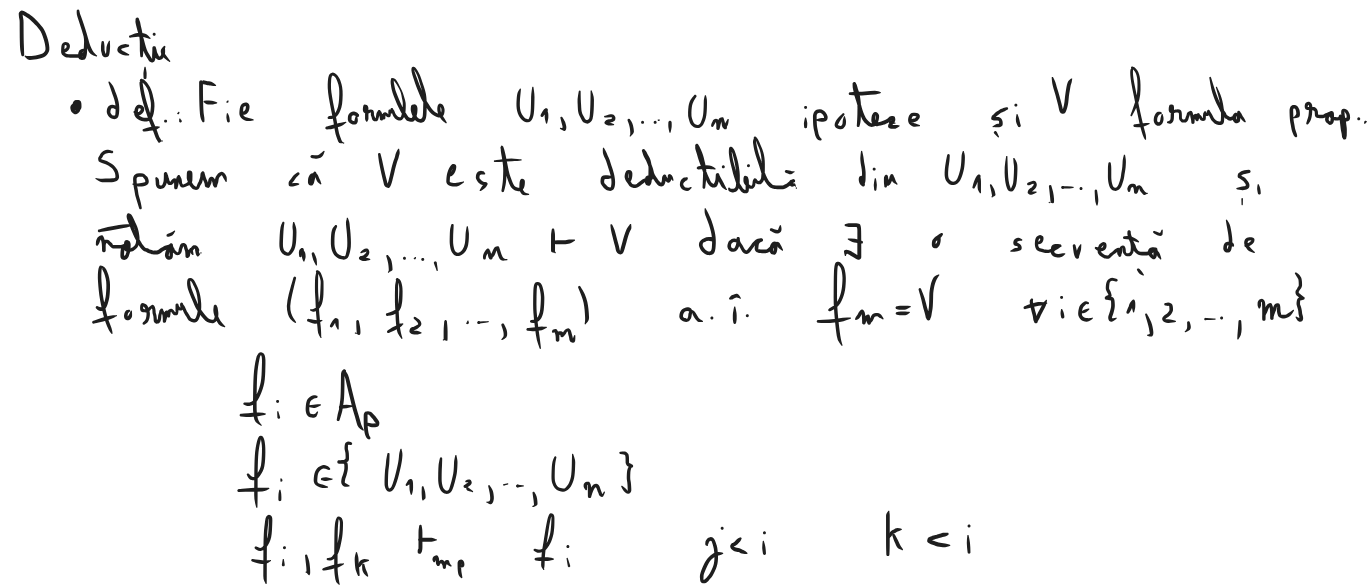 Deducții
• def.: Fie formulele U₁, U₂, ..., Uₙ ipoteze și V formula prop.
Spunem că V este deductibilă din U₁, U₂, ..., Uₙ și
notăm U₁, U₂, ..., Uₙ ⊢ V dacă ∃ o secvență de
formule (f₁, f₂, ..., fₘ) a.î. fₘ = V ∀i ∈ {1, 2, ..., m}
fᵢ ∈ Aₚ
fᵢ ∈ { U₁, U₂, ..., Uₙ }
fⱼ, fₖ ⊢ₘₚ fᵢ j < i k < i